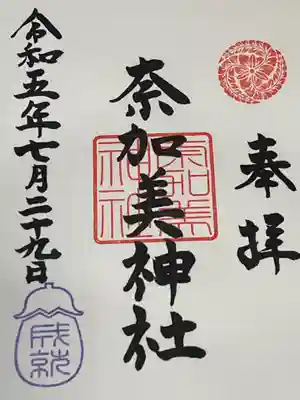 奉拝
奈加美神社
奈加美神社
令和五年七月二十九日
成就